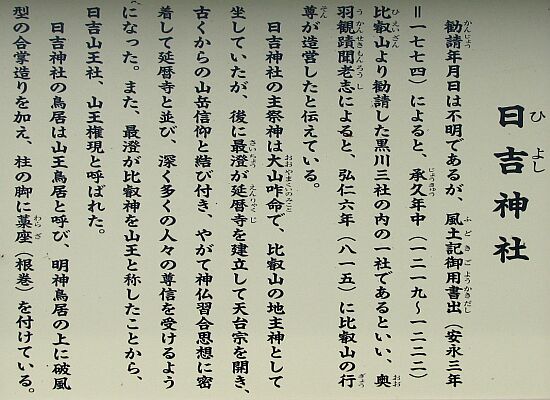 日吉神社
ひよし
勧請年月日は不明であるが、風土記御用書出（安永三年
かんじょう
ふどきごようかきだし
＝一七七四）によると、承久年中（一二一九～一二二二）
じょうきゅう
比叡山より勧請した黒川三社の内の一社であるといい、奥
ひえいざん
おう
羽観蹟聞老志によると、弘仁六年（八一五）に比叡山の行
うかんせきもんろうし
ぎょう
尊が造営したと伝えている。
そん
日吉神社の主祭神は大山咋命で、比叡山の地主神として
おおやまくいのみこと
坐していたが、後に最澄が延暦寺を建立して天台宗を開き、
さいちょう
えんりゃくじ
古くからの山岳信仰と結び付き、やがて神仏習合思想に密
着して延暦寺と並び、深く多くの人々の尊信を受けるよう
になった。また、最澄が比叡神を山王と称したことから、
日吉山王社、山王権現と呼ばれた。
日吉神社の鳥居は山王鳥居と呼び、明神鳥居の上に破風
型の合掌造りを加え、柱の脚に藁座（根巻）を付けている。
わらざ